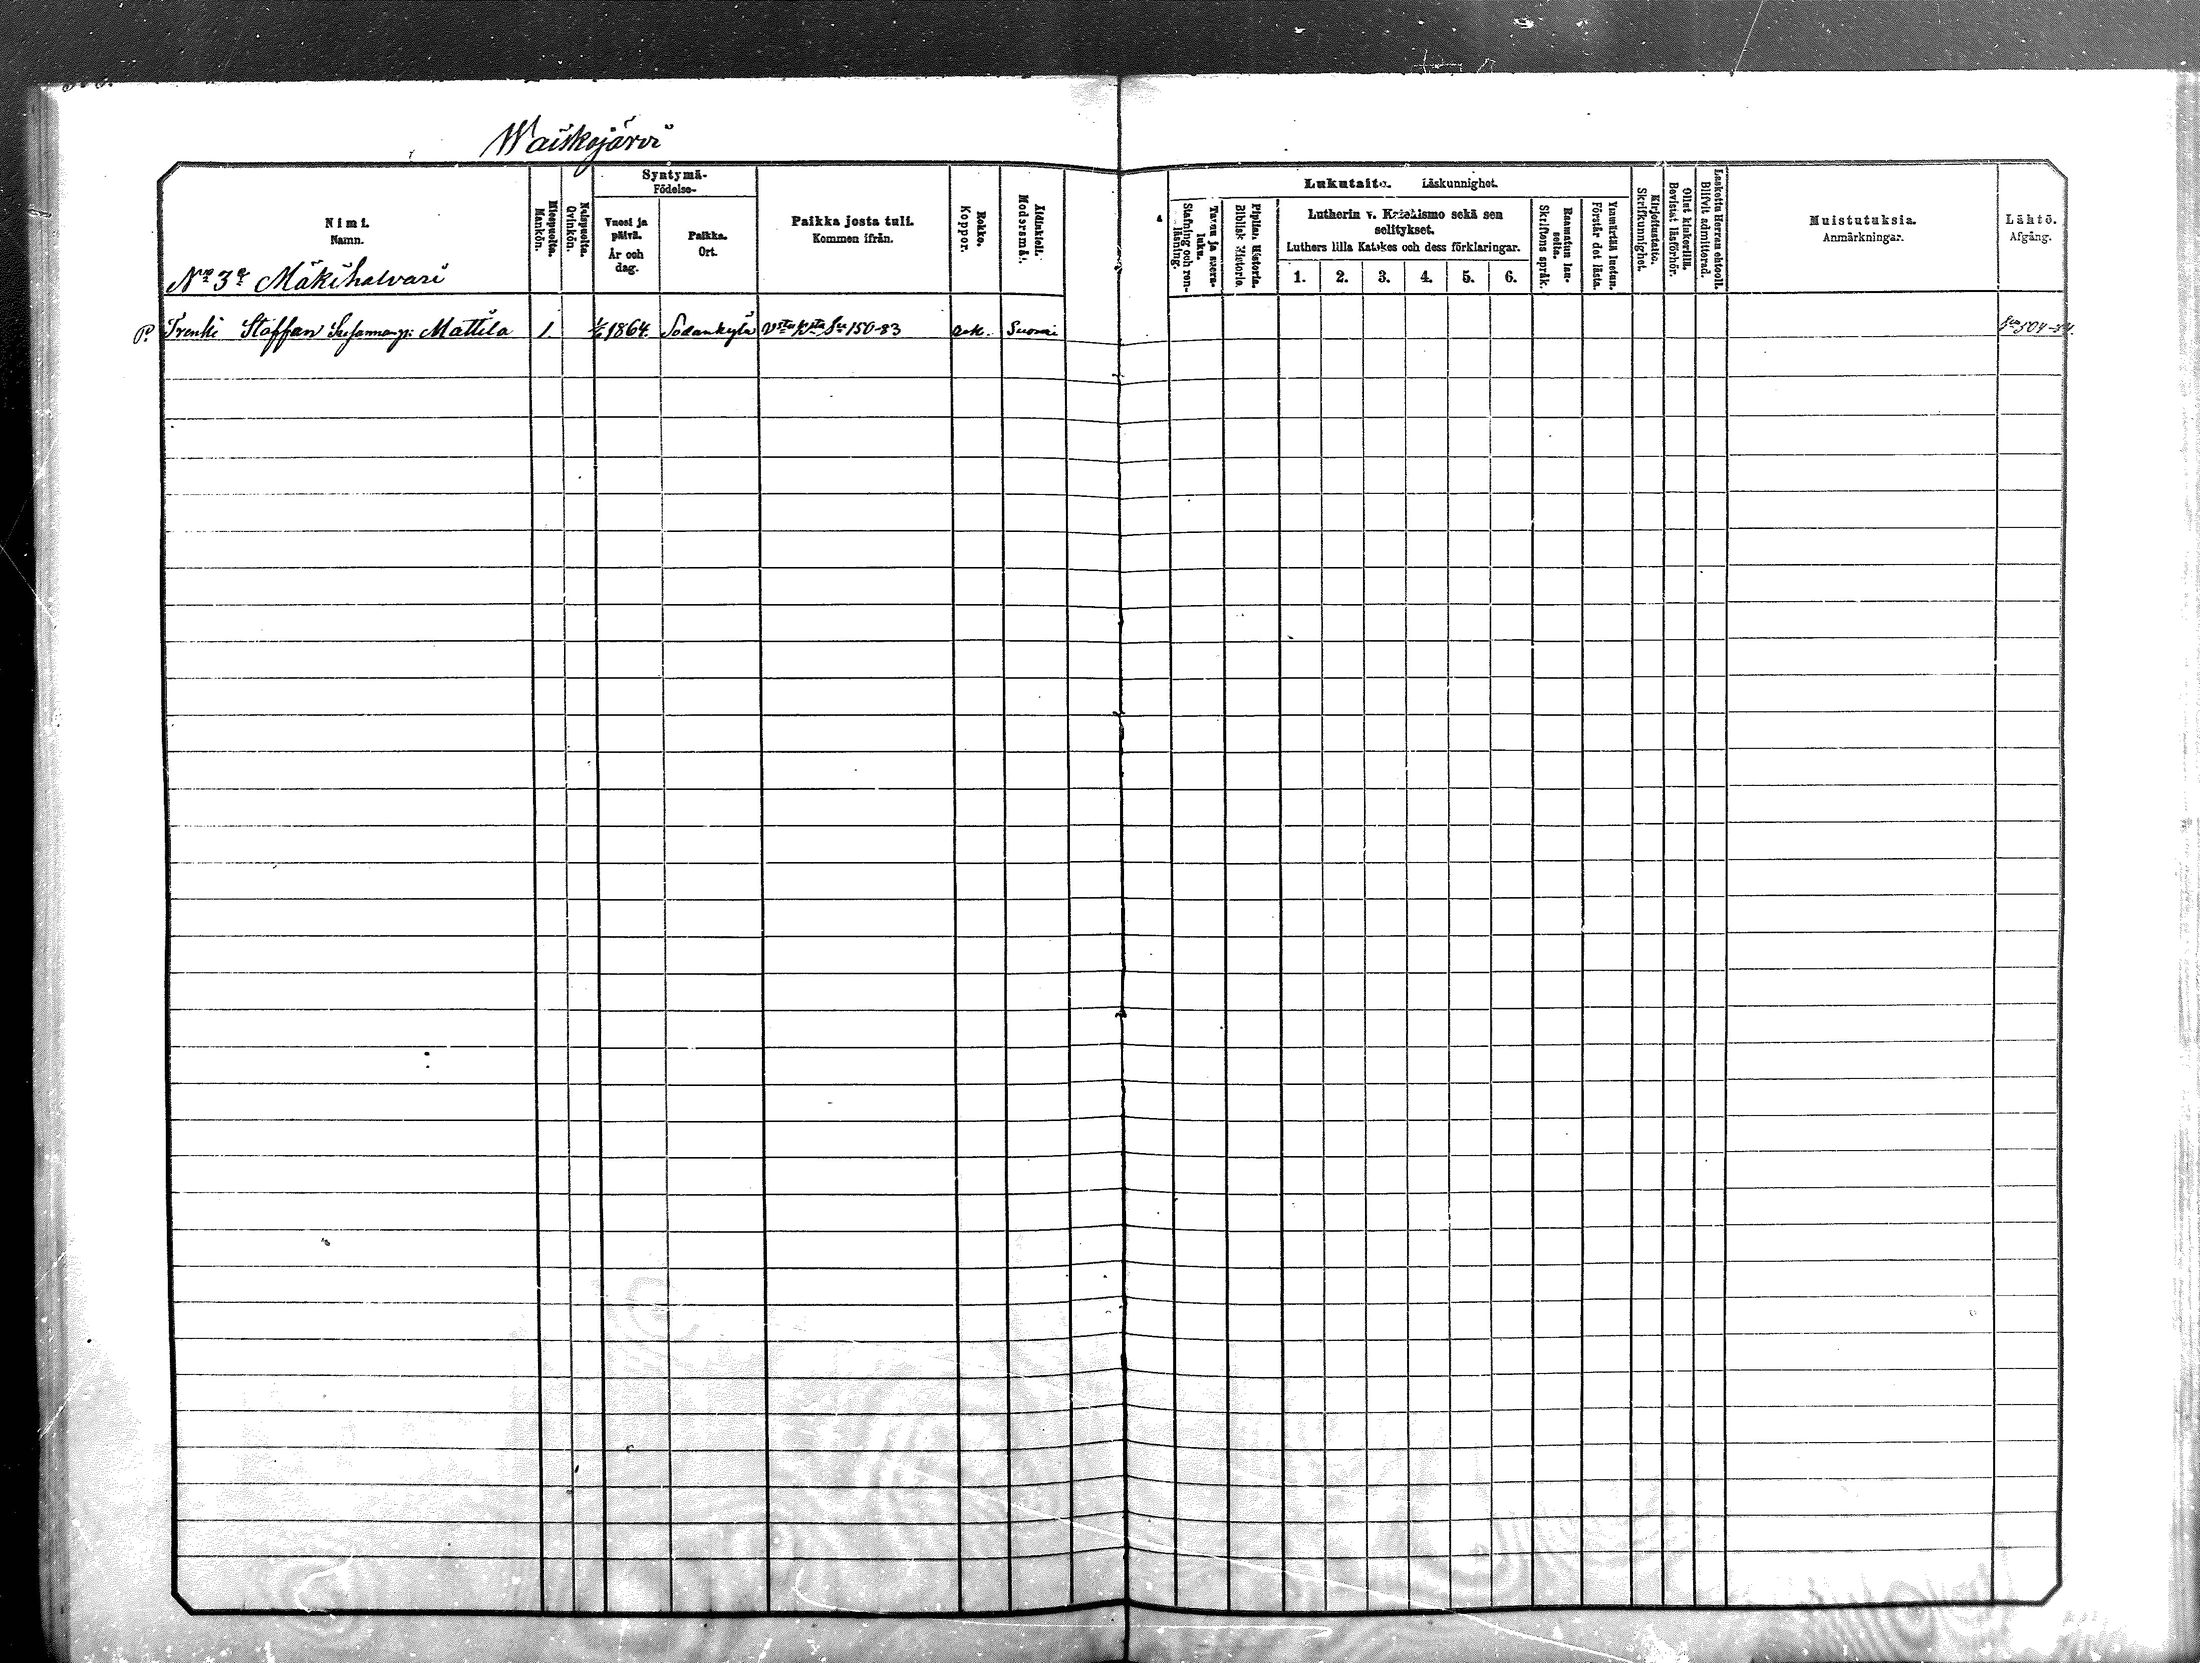 Waiskojärvi
Syntymä-
Födelse-
Nimi.
Namn.
Miespuolia.
Mankön.
Naispuolia.
Qvinkön.
Vuosi ja päivä.
År och dag.
Paikka.
Ort.
Paikka josta tuli.
Kommen ifrån.
Rokko.
Koppor.
Äidinkieli.
Modersmål.
Lukutaito. Läskunnighet.
Tavuu ja suora- luku.
Stafning och ren- läsning.
Piplian Historia.
Biblisk Historia.
Lutherin v. Katekismo sekä sen
selitykset.
Luthers lilla Katekes och dess förklaringar.
1. 2. 3. 4. 5. 6.
Raamatun lau- seita.
Skriftens språk.
Ymmärtää luetun.
Förstår det lästa.
Kirjoitustaito.
Skrifkunnighet.
Ollut kinkerillä.
Bevistat läsförhör.
Laskettu Herran ehtooll.
Blifvit admitterad.
Muistutuksia.
Anmärkningar.
Lähtö.
Afgång.
N:o 3 Mäkihalvari
P. Trenki Staffan Mattila 1. 1864. Sodankylä 150-83 Suomi 504